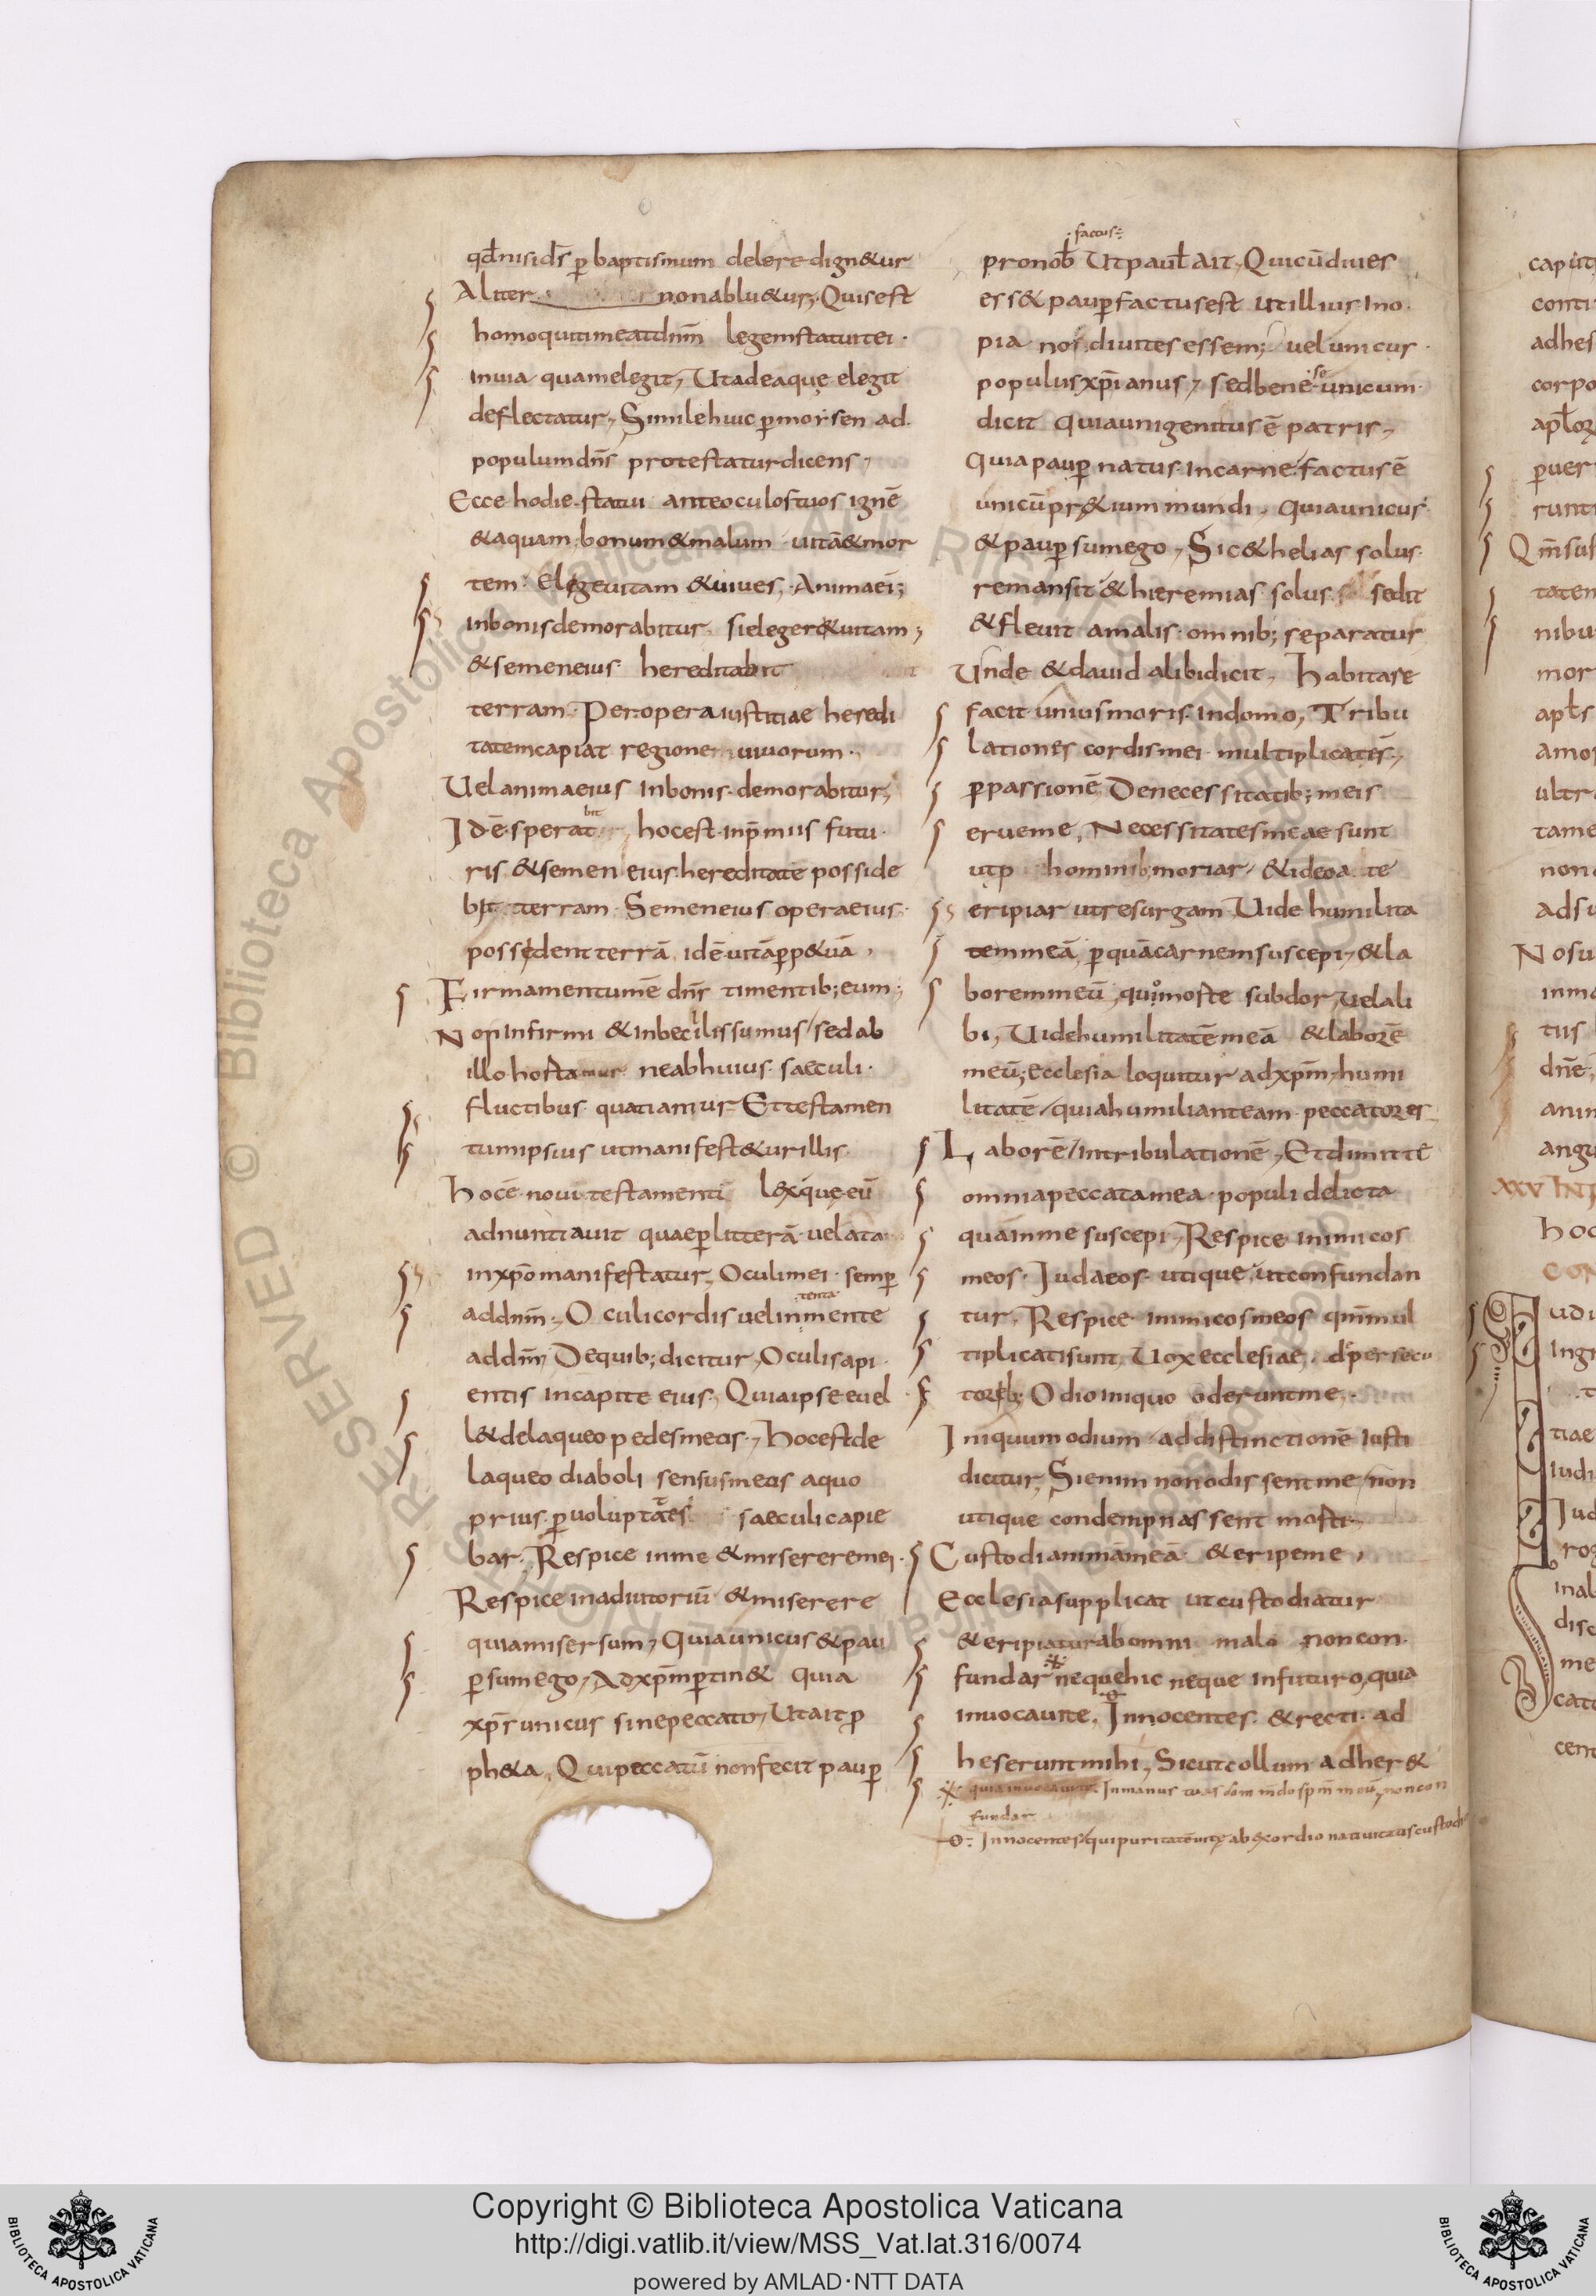 qđ nisi ds̄ p baptismum delere dign&ur
Aliter non ablu&ur, Quis est
homo qui timeat dnm̄ legem statuit ei
in uia quam elegit, Ut ad ea que elegit
deflectatur, Simile huic p morsen ad
populum dn̄s protestatur dicens,
Ecce hodie statui ante oculos tuos ignē
& aquam bonum & malum uitā & mor
tem Elige uitam & uiues, Anima ei;
in bonis demorabitur si eleger& uitam,
& semen eius hereditabit
terram Per opera iustitiae heredi
tatem capiat regione uiuorum
Uel anima eius in bonis demorabitur,
Id ē sperat hoc est in p̄miis futu
ris & semen eius hereditate posside
bit terram Semen eius opera eius
possident terrā id ē uitā pp&uā,
Firmamentum ē dn̄s timentib; eum;
Non infirmi & inbecilis sumus sed ab
illo hostamur ne ab huius saeculi
fluctibus quatiamur Et testamen
tum ipsius ut manifest&ur illis
hoc ē noui testamenti lex que eū
adnuntiauit quae p litterā uelata
in xp̄o manifestatur, Oculi mei semp
ad dnm̄, Oculi cordis uel in mente tenta
ad dm̄, De quib; dicitur, Oculi sapi
entis in capite eius, Quia ipse euel
l& de laqueo pedes meos, hoc est de
laqueo diaboli sensus meos a quo
prius p uoluptates saeculi capie
bar, Respice in me & miserere mei
Respice in adiutoriū & miserere
quia miser sum, Quia unicus & pau
p sum ego, Ad xp̄m ptin& quia
xp̄s unicus sine peccato, Ut ait p
ph&a, Qui peccatū non fecit paup
factus
pro nob̄ Ut paul̄ ait, Qui cū diues
ess& paup factus est ut illius ino
pia nos diuites essem; uel unicus
populus xp̄ianus, sed bene se unicum
dicit quia unigenitus ē patris,
Quia paup natus in carne factus ē
unicū pr&ium mundi, quia unicus
& paup sum ego, Sic & helias solus
remansit & hieremias solus sedit
& fleuit a malis omnib; separatur
Unde & dauid alibi dicit, habitare
facit unius moris in domo, Tribu
lationes cordis mei multiplicates,
p passionē De necessitatib; meis
erue me, Necessitates meae sunt
ut p hominib; moriar, & ideo a te
eripiar ut resurgam Uide humilita
tem meā, p quā carnem suscepi, & la
borem meū, quo moste subdor, uel ali
bi, Uide humilitatē meā & laborē
meū; ecclesia loquitur ad xp̄m, humi
litatē, quia humiliant eam peccatores
Laborē, in tribulationē, Et dimitte
omnia peccata mea populi delicta
quā in me suscepi, Respice inimicos
meos Iudaeos utique, ut confundan
tur, Respice inimicos meos qnm̄ mul
tiplicati sunt, Uox ecclesiae de persecu
torib; Odio iniquo oderunt me,
Iniquum odium ad distinctionē iusti
dicitur, Si enim non odissent me, non
utique condempnassent moste,
Custodi animā meā & eripe me,
Ecclesia supplicat ut custodiatur
& eripiatur ab omni malo non con
fundar neque hic neque in futuro, quia
inuocaui te, Innocentes & recti ad
heserunt mihi, Sicut collum adher&
quia inuocaui te. In manus tuas dom̄ mdo spm̄ meū, non con
fundar
Innocentes, qui puritatē uitę ab exordio natiuitatis custodi
capit
conti
adhes
corpo
puer
runt
tatem
nibus
mor
amos
ultra
tame
non
adsu
Nosu
tiis
dn̄e
anim
angu
XXV IN
hoc
udi
ingr
tiae
iudi
Iud
rog
disc
me
catu
cent
Copyright © Biblioteca Apostolica Vaticana
http://digi.vatlib.it/view/MSS_Vat.lat.316/0074
powered by AMLAD·NTT DATA
BIBLIOTECA APOSTOLICA VATICANA
BIBLIOTECA APOSTOLICA VATICANA